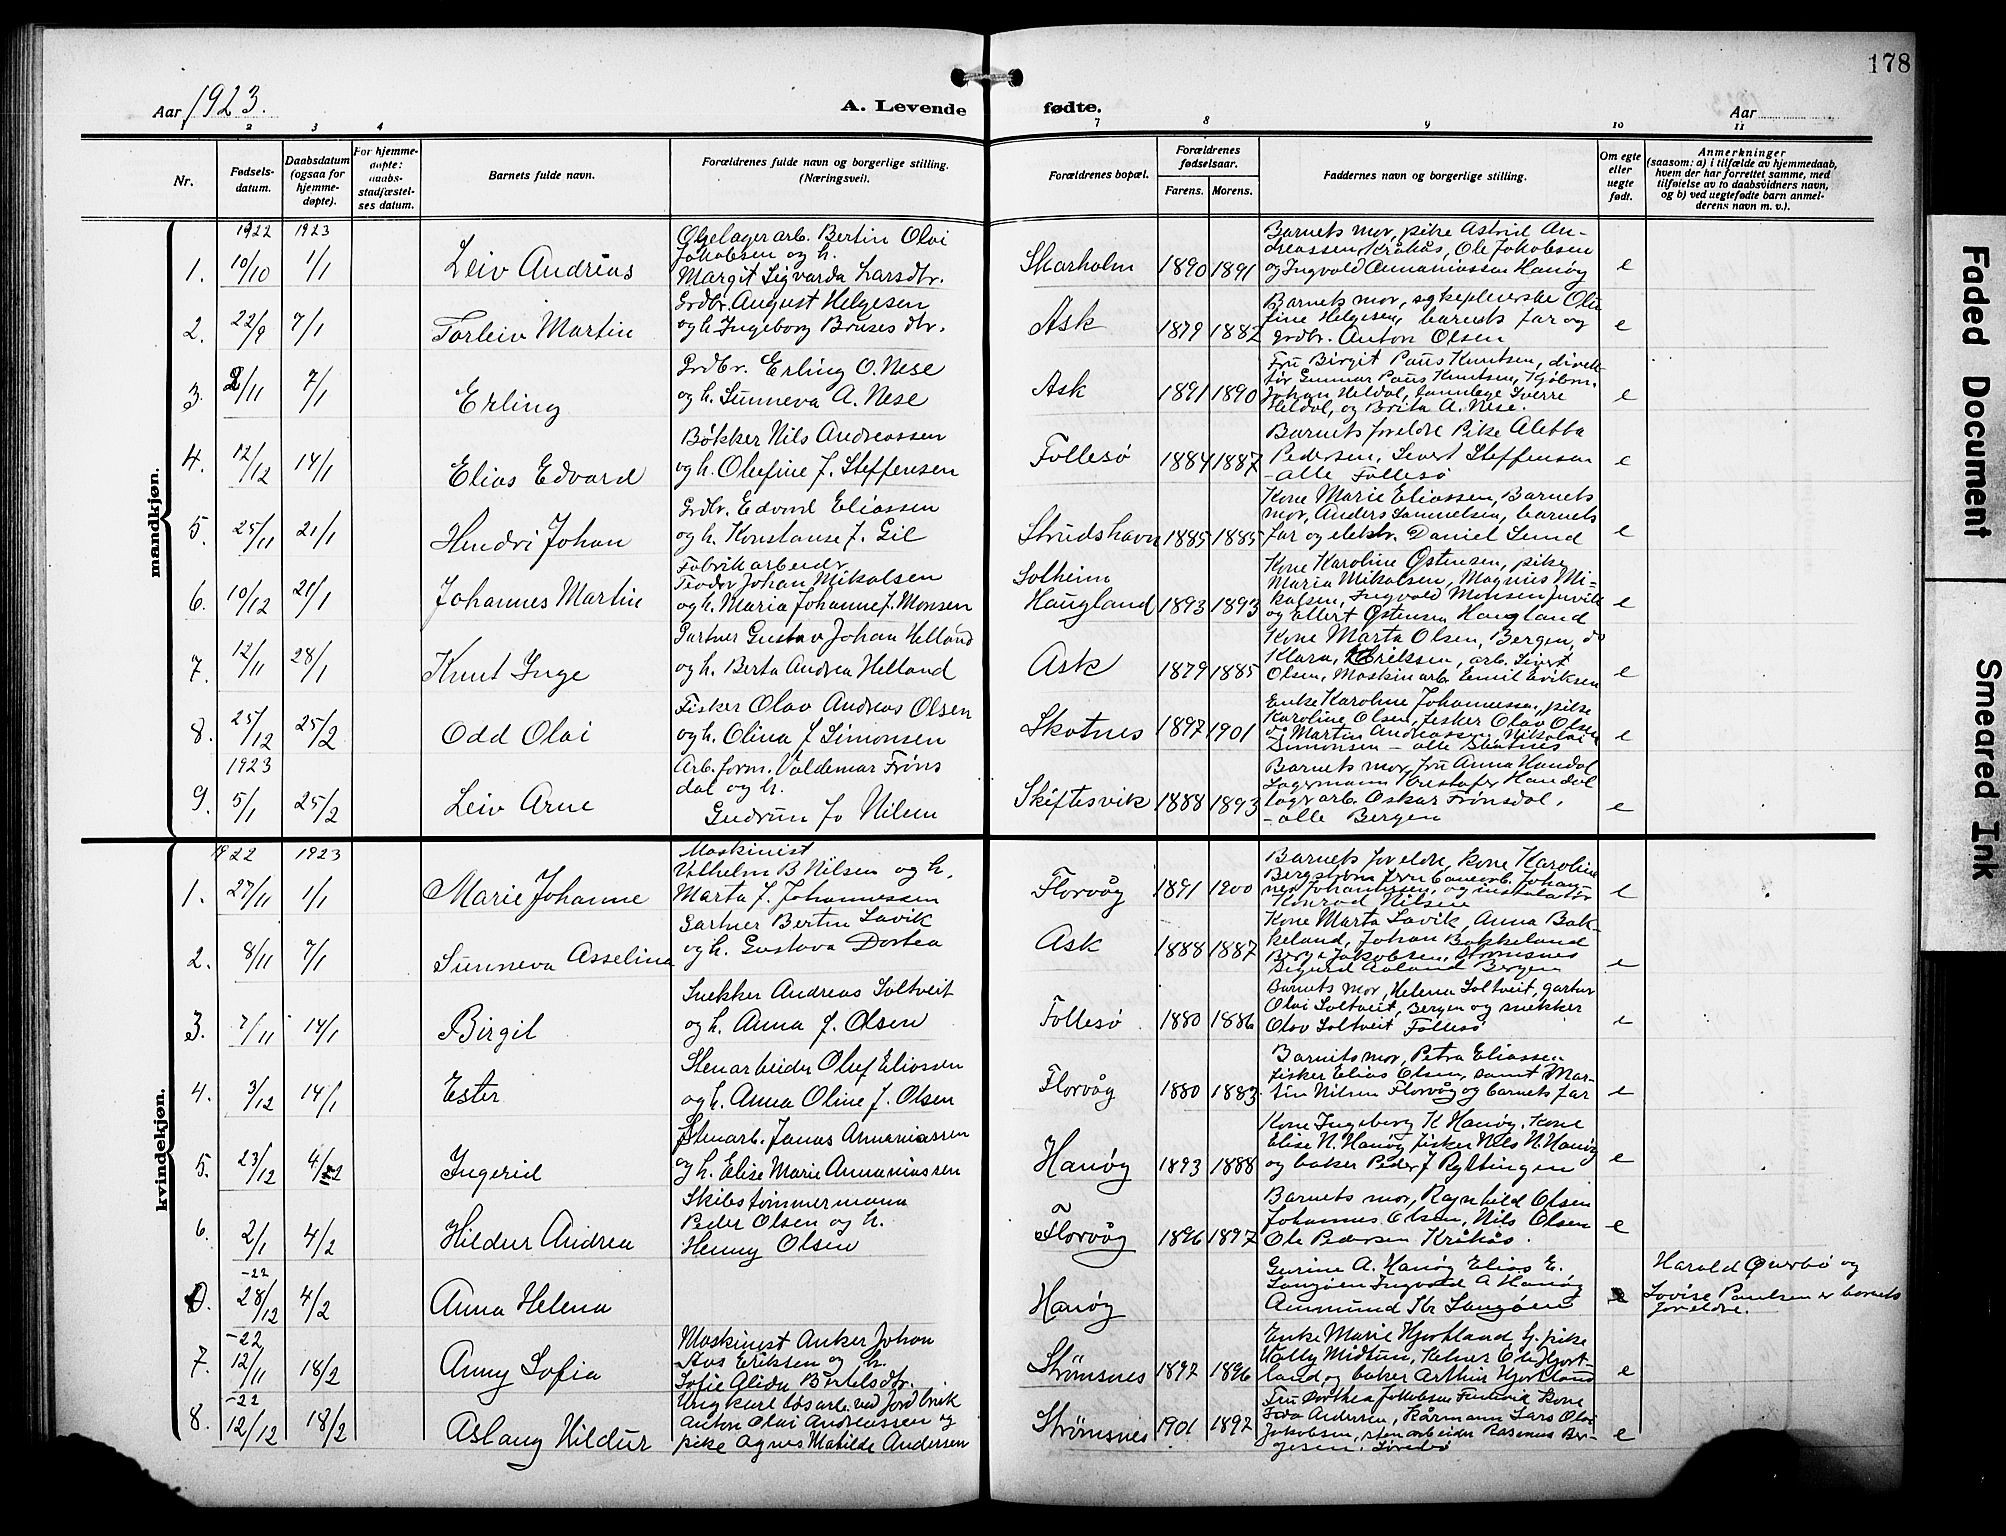 178
Aar 1923.
A. Levende fødte.
Aar
1 2 3 4 7 8 9 10 11
Nr.
Fødsels-
datum.
Daabsdatum
(ogsaa for
hjemme-
døpte).
For hjemme-
døpte:
daabs-
stadfæstel-
ses datum.
Barnets fulde navn.
Forældrenes fulde navn og borgerlige stilling.
(Næringsvei).
Forældrenes bopæl.
Forældrenes
fødselsaar.
Farens. Morens.
Faddernes navn og borgerlige stilling.
Om egte
eller
uegte
født.
Anmerkninger
(saasom: a) i tilfælde av hjemmedaab,
hvem der har forrettet samme, med
tilføielse av to daabsvidners navn,
og b) ved uegtefødte barn anmel-
derens navn m. v.).
mandkjøn.
1922 1923
1. 10/10 1/1 Leiv Andreas
Oljelagerarb. Bertin Olai
Jakobsen og h.
Margit Sigvarda Larsdtr.
Skarholm 1890 1891
Barnets mor, pike Astrid An-
dreassen, Kråkås, Ole Jakobsen
og Ingvald Annaniassen Hanøy
e
2. 22/9 7/1 Torleiv Martin
Grdbr. August Helgesen
og h. Ingeborg Brusesdtr.
Ask 1879 1882
Barnets mor, sykepleierske Oli
fine Helgesen, barnets far og
grdbr. Anton Olsen
e
3. 2/11 7/1 Erling
Grdbr. Erling O. Nese
og h. Sunneva A. Nese
Ask 1891 1890
Fru Birgit Paus Knutsen, direk-
tør Gunnar Paus Knutsen, Kjøbm.
Johan Heldal, tannlege Sverre
Heldal, og Brita A. Nese.
e
4. 12/12 14/1 Elias Edvard
Bøkker Nils Andreassen
og h. Olefine J. Steffensen
Follesø 1884 1887
Barnets foreldre Pike Aletta
Pedersen, Sivert Steffensen
- alle Follesø
e
5. 25/11 21/1 Hendri Johan
Grdbr. Edvard Eliassen
og h. Konstanse J. Gil
Strudshavn 1885 1885
Kone Marie Eliassen, Barnets
mor, Anders Samuelsen, barnets
far og elektr. Daniel Lund
e
6. 10/12 21/1 Johannes Martin
Fabrikarbeidr.
Teodor Johan Mikalsen
og h. Maria Johanne J. Monsen
Solheim
Haugland 1893 1893
Kone Karoline Østensen, pike
Maria Mikalsen, Magnus Mi-
kalsen, Ingvald Monsen
og Ellert Østensen Haugland
e
7. 12/11 28/1 Knut Inge
Gartner Gustav Johan Helland
og h. Berta Andrea Helland
Ask 1879 1885
Kone Marta Olsen, Bergen, do
Klara Eriksen, arb. Sivert
Olsen, Maskinarb. Emil Eriksen
e
8. 25/12 25/2 Odd Olai
Fisker Olav Andreas Olsen
og h. Olina J. Simonsen
Skotnes 1897 1901
Enke Karoline Johannessen, pike
Karoline Olsen, fisker Olav Olsen
do Martin Andreassen, Nikolai
Simonsen - alle Skotnes
e
1923
9. 5/1 25/2 Leiv Arne
Arb. form. Valdemar Frøns
dal og h.
Gudrun Jo Nilsen
Skiftesvik 1888 1893
Barnets mor, fru Anna Handal
Lagermann Kristofer Handal
lagerarb. Oskar Frønsdal,
- alle Bergen
e
kvindekjøn.
1922 1923
1. 27/11 1/1 Marie Johanne
Maskinist
Vilhelm B Nilsen og h.
Marta J. Johannessen
Florvåg 1891 1900
Barnets foreldre, kone Karoline
Bergstrøm, Johan-
nes Johannesen, og instalatør
Konrad Nilsen
e
2. 8/11 7/1 Sunneva Asseline
Gartner Bertin Lavik
og h. Gustava Dortea
Ask 1888 1887
Kone Marta Lavik, Anna Bak-
keland, Johan Bakkeland
Berge Jakobsen, Strømsnes
Sigurd Aaland Bergen
e
3. 7/11 14/1 Birgit
Snekker Andreas Soltveit
og h. Anna J. Olsen
Follesø 1880 1886
Barnets mor, Helena Soltveit, gartner
Olai Soltveit, Bergen og snekker
Olav Soltveit Follesø
e
4. 3/12 14/1 Ester
Stenarbeider Oluf Eliassen
og h. Anna Oline J. Olsen
Florvåg 1880 1883
Barnets mor, Petra Eliassen
fisker Elias Olsen, samt Mar-
tin Nilsen Florvåg og barnets far
e
5. 23/12 4/2 Ingerid
Stenarb. Jonas Annaniassen
og h. Elise Marie Annaniassen
Hanøy 1893 1888
Kone Ingeborg K Hanøy, Kone
Elise N. Hanøy fisker Nils N. Hanøy
og baker Peder J Ryltingen
e
6. 2/1 4/2 Hildur Andrea
Skibstømmermann
Peder Olsen og h.
Henny Olsen
Florvåg 1896 1897
Barnets mor, Ragnhild Olsen
Johannes Olsen, Nils Olsen
Ole Pedersen Kråkås.
e
-22
0. 28/12 4/2 Anna Helena
Hanøy
Gurine A. Hanøy Elias E.
Langøen Ingvald A Hanøy
Ammund Kr Langøen
Harald Øverbø og
Lovise Paulsen er barnets
foreldre.
-22
7. 12/11 18/2 Anny Sofia
Maskinist Anker Johan
Aas Eriksen og h.
Sofie Alida Bertelsdtr.
Strømsnes 1897 1896
Enke Marie Hjortland G. pike
Wally Midtun, Kelner Ole Hjort-
land og baker Arthur Hjortland
e
-22
8. 12/12 18/2 Aslaug Hildur
Ungkarl løsarb. ved Jordbruk
Anton Olai Andreassen og
pike Agnes Matilde Andersen
Strømsnes 1901 1897
Fru Dorthea Jakobsen Kone
Fida Andersen, Kårmann Lars Olai
Jakobsen, stenarbeider Rasmus Ber-
gesen.
e
Faded Document
Smeared Ink